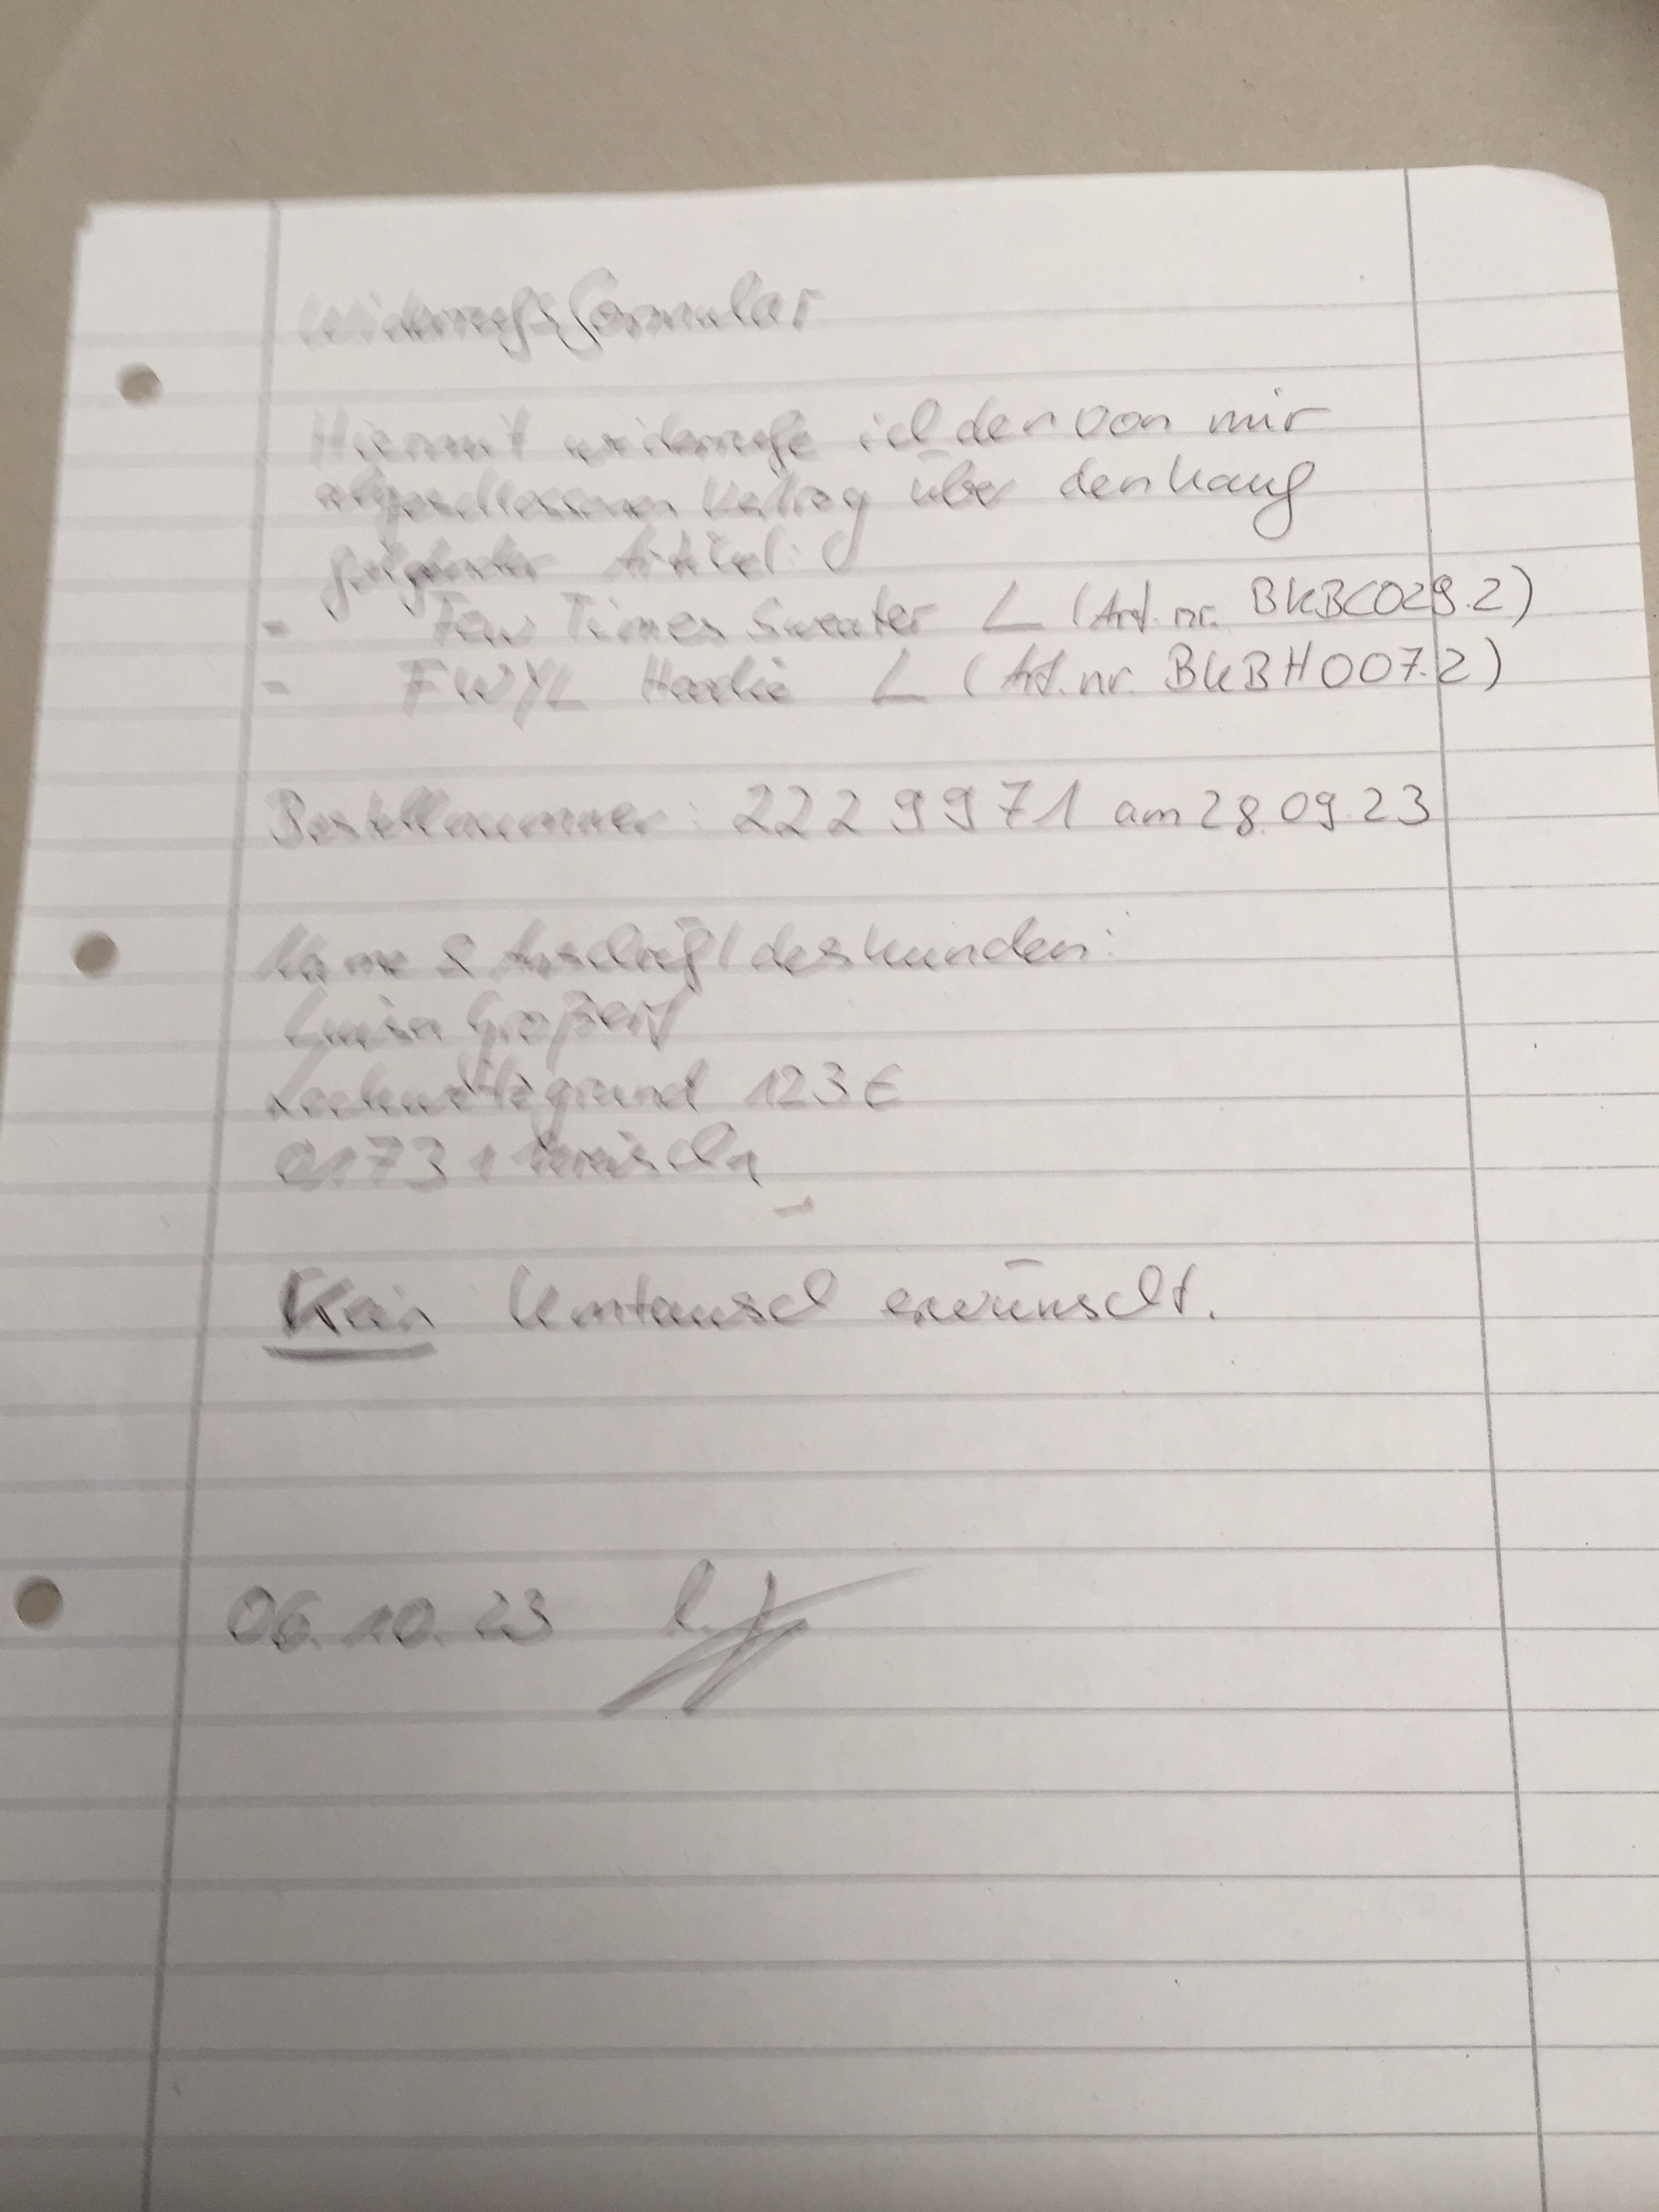 Widerrufsformular
Hiermit widerrufe ich den von mir
abgeschlossenen Vertrag über den Kauf
folgender Artikel:
- Few Times Sweater L (Art.nr. BKBC029.2)
- FWYL Hoodie L (Art.nr. BKBH007.2)
Bestellnummer: 2229971 am 28.09.23
Name & Anschrift des Kunden:
Luisa
123E
01731 Kreischa
Kein Umtausch erwünscht.
06.10.23